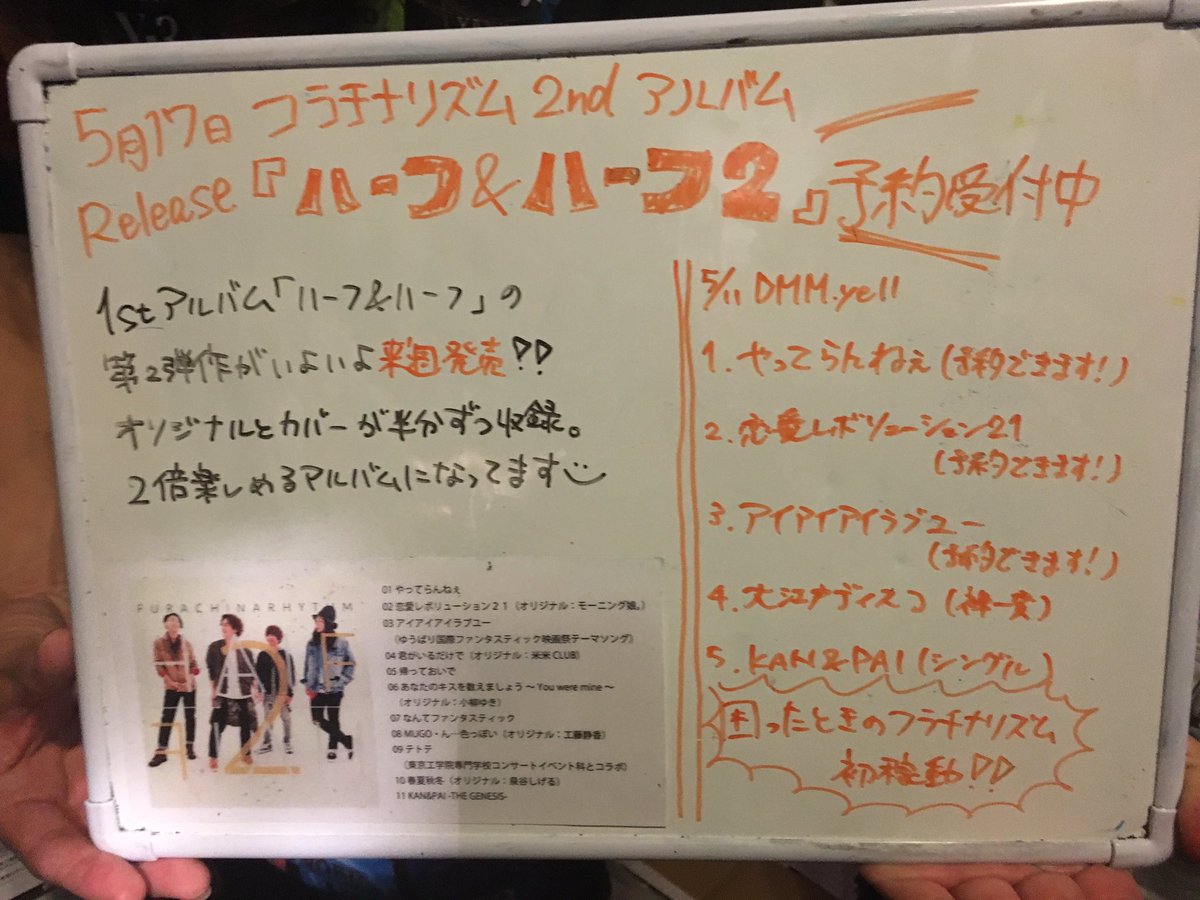 5月17日 フラチナリズム 2nd アルバム
Release 『ハーフ&ハーフ2』予約受付中
1stアルバム「ハーフ&ハーフ」の
第2弾作がいよいよ来週発売!!
オリジナルとカバーが半分ずつ収録。
2倍楽しめるアルバムになってます
FURACHINARHYTHM
01 やってらんねぇ
02 恋愛レボリューション21(オリジナル:モーニング娘。)
03 アイアイアイラブユー
(ゆうばり国際ファンタスティック映画祭テーマソング)
04 君がいるだけで(オリジナル:米米CLUB)
05 帰っておいで
06 あなたのキスを数えましょう 〜 You were mine 〜
(オリジナル:小柳ゆき)
07 なんてファンタスティック
08 MUGO・ん…色っぽい(オリジナル:工藤静香)
09 テトテ
(東京工学院専門学校コンサートイベント科とコラボ)
10 春夏秋冬(オリジナル:泉谷しげる)
11 KAN&PAI -THE GENESIS-
5/11 DMM.yell
1. やってらんねぇ(予約できます!)
2. 恋愛レボリューション21
(予約できます!)
3. アイアイアイラブユー
(予約できます!)
4. 大江戸ディスコ(神一変)
5. KAN&PAI(シングル)
困ったときのフラチナリズム
初稼動!!